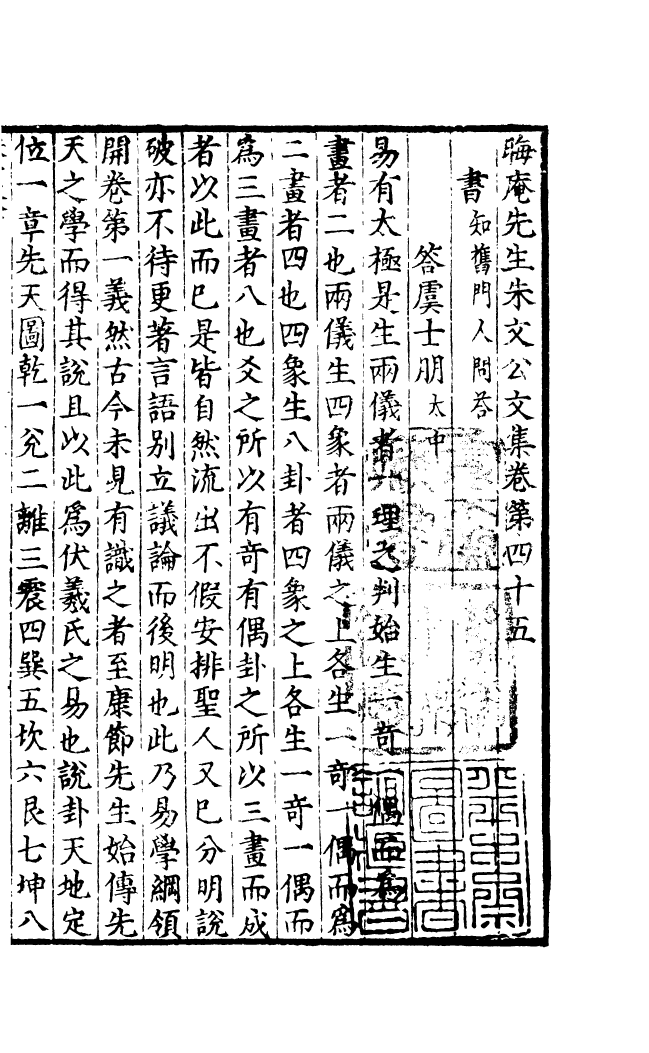 晦庵先生朱文公文集卷第四十五
書知舊門人問荅
答虞士朋太中
易有太極是生兩儀者一理之判始生一奇一偶而爲
畫者二也兩儀生四象者兩儀之上各生一奇一偶而爲
二畫者四也四象生八卦者四象之上各生一奇一偶而
爲三畫者八也爻之所以有奇有偶卦之所以三畫而成
者以此而已是皆自然流出不假安排聖人又已分明說
破亦不待更著言語別立議論而後明也此乃易學綱領
開卷第一義然古今未見有識之者至康節先生始傳先
天之學而得其說且以此爲伏羲氏之易也說卦天地定
位一章先天圖乾一兊二離三震四巽五坎六艮七坤八